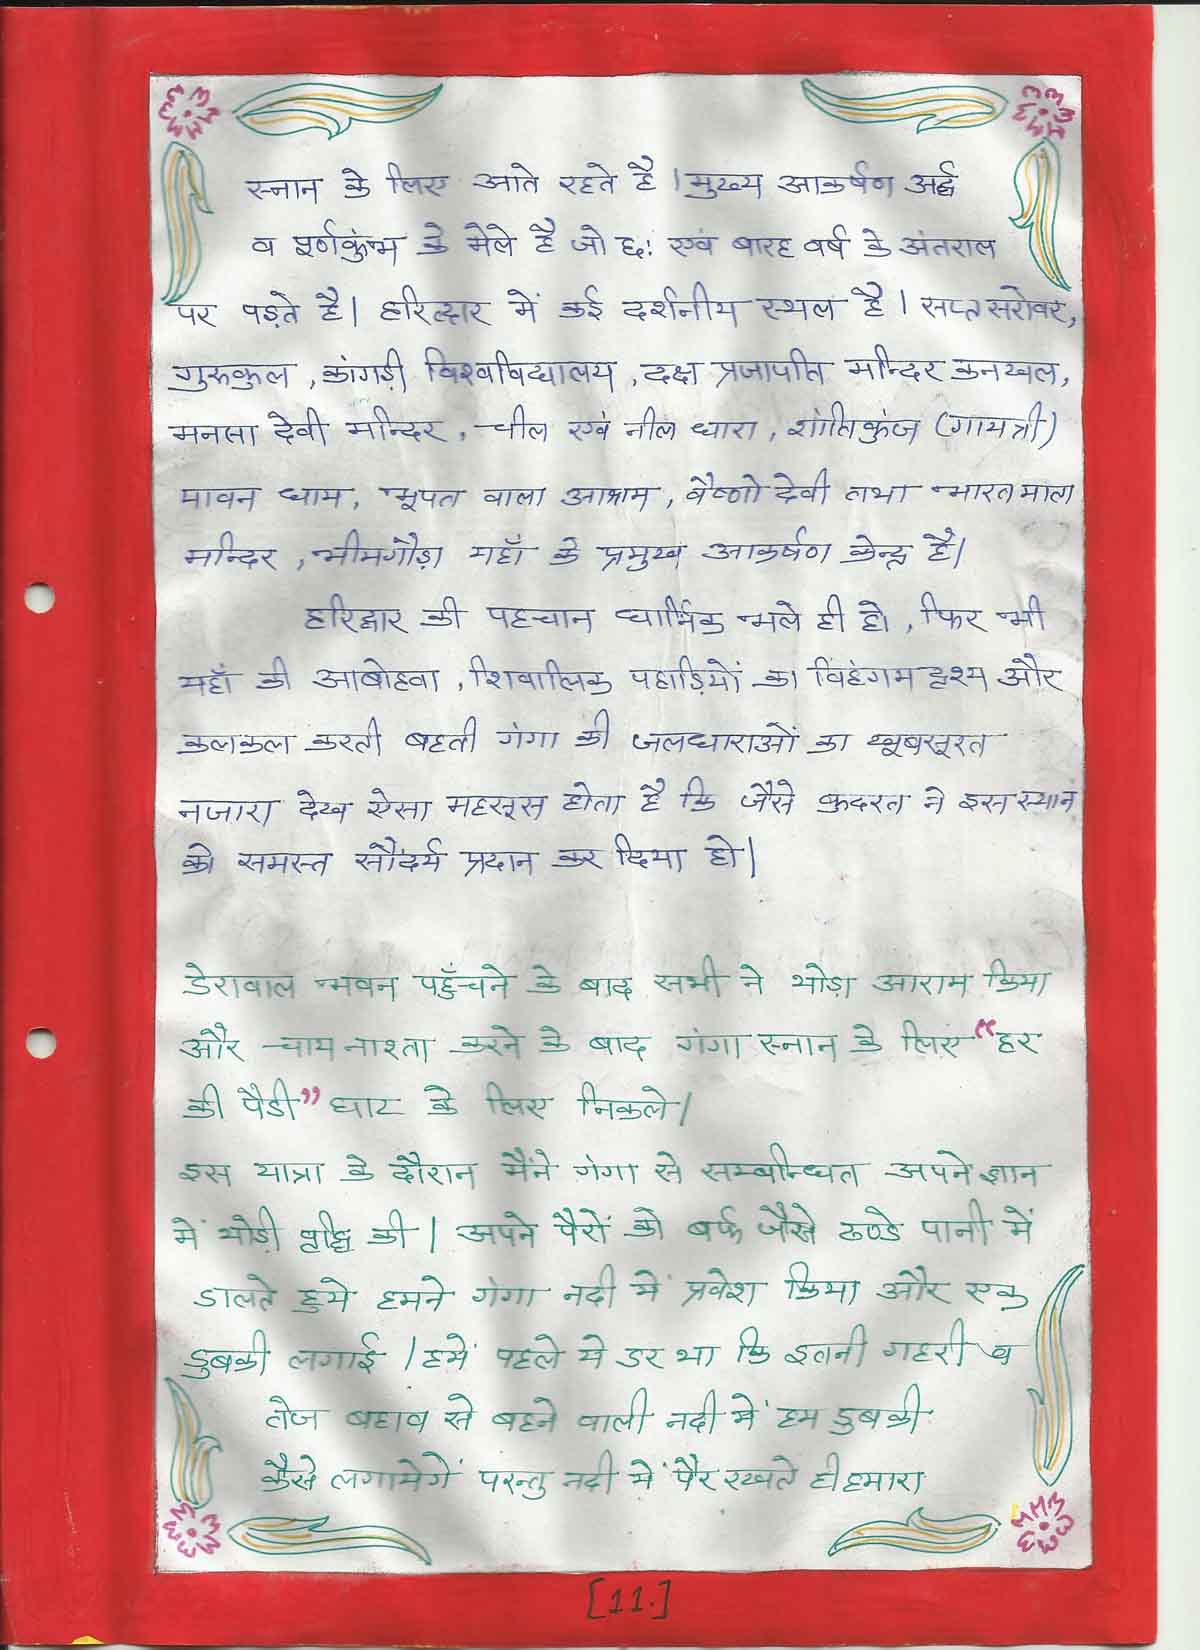 स्नान के लिए आते रहते है । मुख्य आकर्षण अर्द्ध
व पूर्णकुंम्भ के मेले है जो छः एवं बारह वर्ष के अंतराल
पर पड़ते है। हरिद्वार में कई दर्शनीय स्थल है । सप्त सरोवर,
गुरुकुल , कांगड़ी विश्वविद्यालय , दक्ष प्रजापति मन्दिर कनखल,
मनसा देवी मन्दिर , चील एवं नील धारा , शांतिकुंज (गायत्री)
पावन धाम, भूपत वाला आश्रम , वैष्णो देवी तथा भारत माता
मन्दिर , भीमगौड़ा यहाँ के प्रमुख आकर्षण केन्द्र है।
हरिद्वार की पहचान धार्मिक भले ही हो , फिर भी
यहाँ की आबोहवा , शिवालिक पहाड़ियों का विहंगम दृश्य और
कलकल करती बहती गंगा की जलधाराओं का खूबसूरत
नजारा देख ऐसा महसूस होता है कि जैसे कुदरत ने इस स्थान
को समस्त सौंदर्य प्रदान कर दिया हो।
डेरावाल भवन पहुँचने के बाद सभी ने थोड़ा आराम किया
और चाय नाश्ता करने के बाद गंगा स्नान के लिए “हर
की पैडी” घाट के लिए निकले।
इस यात्रा के दौरान मैंने गंगा से सम्बन्धित अपने ज्ञान
में थोड़ी वृद्धि की । अपने पैरों को बर्फ जैसे ठण्डे पानी में
डालते हुये हमने गंगा नदी में प्रवेश किया और एक
डुबकी लगाई । हमें पहले ये डर था कि इतनी गहरी व
तेज बहाव से बहने वाली नदी में हम डुबकी
कैसे लगायेगें परन्तु नदी में पैर रखते ही हमारा
[11.]